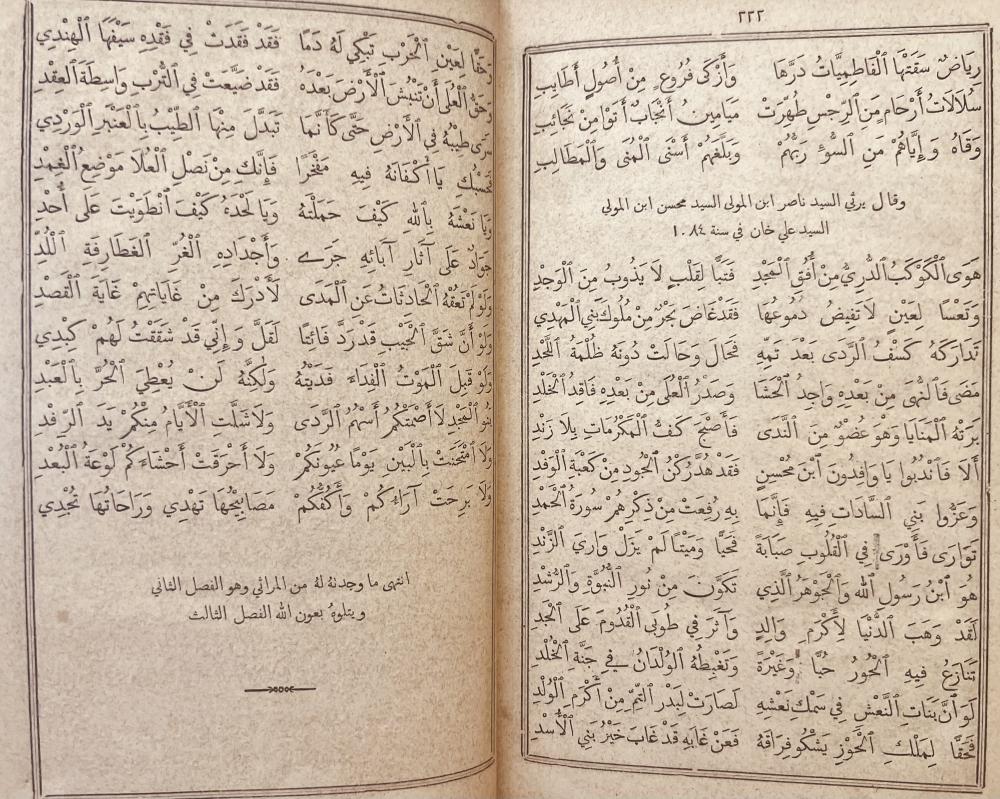 ٢٢٢
رِيَاضٌ سَقَتْهَا ٱلْفَاطِمِيَّاتُ دَرَّهَا وَأَزْكَى فُرُوعٍ مِنْ أُصُولٍ أَطَايِبِ
سُلَالَاتُ أَرْحَامٍ مِنَ ٱلرِّجْسِ طُهِّرَتْ مَيَامِينُ أَنْجَابٌ أَتَوْا مِنْ نَجَائِبِ
وَقَاهُ وَإِيَّاهُمْ مِنَ السُّوْءِ رَبُّهُمْ وَبَلَّغَهُمْ أَسْنَى ٱلْمُنَى وَٱلْمَطَالِبِ
وقال يرثي السيد ناصر ابن المولى السيد محسن ابن المولى
السيد علي خان في سنة ١٠٨٤
هَوَى ٱلْكَوْكَبُ ٱلدُّرِّيُّ مِنْ أُفُقِ ٱلْمَجْدِ فَتَبًّا لِقَلْبٍ لَا يَذُوبُ مِنَ ٱلْوَجْدِ
وَتَعْسًا لِعَيْنٍ لَا تَفِيضُ دُمُوعُهَا فَقَدْ غَاضَ بَحْرٌ مِنْ مُلُوكِ بَنِي ٱلْمَهْدِي
تَدَارَكَهُ كَسْفُ ٱلرَّدَى بَعْدَ تَمِّهِ فَحَالَ وَحَالَتْ دُونَهُ ظُلْمَةُ ٱللَّحْدِ
مَضَى فَٱلنُّهَى مِنْ بَعْدِهِ وَاجِدُ ٱلْحَشَا وَصَدْرُ ٱلْعُلَى مِنْ بَعْدِهِ فَاقِدُ ٱلْخَلْدِ
بَرَتْهُ ٱلْمَنَايَا وَهْوَ عَضْوٌ مِنَ ٱلنَّدَى فَأَصْبَحَ كَفُّ ٱلْمَكْرُمَاتِ بِلَا زَنْدِ
أَلَا فَٱنْدُبُوا يَا وَافِدُونَ ٱبْنَ مُحْسِنٍ فَقَدْ هُدَّ رُكْنُ ٱلْجُودِ مِنْ كَعْبَةِ ٱلْوَفْدِ
وَعَزُّوا بَنِي ٱلسَّادَاتِ فِيهِ فَإِنَّمَا بِهِ رُفِعَتْ مِنْ ذِكْرِهِمْ سُورَةُ ٱلْحَمْدِ
تَوَارَى فَأَوْرَى فِي ٱلْقُلُوبِ صَبَابَةً فَحَيًّا وَمَيْتًا لَمْ يَزَلْ وَارِيَ ٱلزَّنْدِ
هُوَ ٱبْنُ رَسُولِ ٱللهِ وَٱلْجَوْهَرُ ٱلَّذِي تَكَوَّنَ مِنْ نُورِ ٱلنُّبُوَّةِ وَٱلرُّشْدِ
لَقَدْ وَهَبَ ٱلدُّنْيَا لِأَكْرَمِ وَالِدٍ وَآثَرَ فِي طُوبَى ٱلْقُدُومَ عَلَى ٱلْجَدِّ
تَنَازَعُ فِيهِ ٱلْحُورُ حُبًّا وَغَيْرَةً وَتَغْبِطُهُ ٱلْوِلْدَانُ فِي جَنَّةِ ٱلْخُلْدِ
لَوَ ٱنَّ بَنَاتِ ٱلنَّعْشِ فِي سَمْكِ نَعْشِهِ لَصَارَتْ لِبَدْرِ ٱلتِّمِّ مِنْ أَكْرَمِ ٱلْوُلْدِ
فَحَقًّا لِمَلْكِ ٱلْحَوْزِ يَشْكُو فِرَاقَهُ فَعَنْ غَابِهِ قَدْ غَابَ خَيْرُ بَنِي ٱلْأُسْدِ
وَحَقًّا لِعَيْنِ ٱلْحَرْبِ تَبْكِي لَهُ دَمًا فَقَدْ فَقَدَتْ فِي فَقْدِهِ سَيْفَهَا ٱلْهِنْدِي
وَحَقُّ ٱلْعُلَى أَنْ تَنْبُشَ ٱلْأَرْضَ بَعْدَهُ فَقَدْ ضَيَّعَتْ فِي ٱلتُّرْبِ وَاسِطَةَ ٱلْعِقْدِ
سَرَى طِيبُهُ فِي ٱلْأَرْضِ حَتَّى كَأَنَّمَا تَبَدَّلَ مِنْهَا ٱلطِّيْبُ بِٱلْعَنْبَرِ ٱلْوَرْدِي
بِحَسْبِكِ يَا أَكْفَانَهُ فِيهِ مَفْخَرًا فَإِنَّكِ مِنْ نَصْلِ ٱلْعُلَا مَوْضِعُ ٱلْغِمْدِ
وَيَا نَعْشَهُ بِٱللهِ كَيْفَ حَمَلْتَهُ وَيَا لَحْدَهُ كَيْفَ ٱنْطَوَيْتَ عَلَى أُحْدِ
جَوَادٌ عَلَى آثَارِ آبَائِهِ جَرَى وَأَجْدَادِهِ ٱلْغُرِّ ٱلْغَطَارِفَةِ ٱللُّدِّ
وَلَوْ لَمْ تَعُقْهُ ٱلْحَادِثَاتُ عَنِ ٱلْمَدَى لَأَدْرَكَ مِنْ غَايَاتِهِمْ غَايَةَ ٱلْقَصْدِ
وَلَوْ أَنَّ شَقَّ ٱلْجَيْبِ قَدْ رَدَّ فَائِتًا لَقَلَّ وَإِنِّي قَدْ شَقَقْتُ لَهُمْ كِبْدِي
وَلَوْ قَبِلَ ٱلْمَوْتُ ٱلْفِدَاءَ فَدَيْتُهُ وَلٰكِنَّهُ لَنْ يُعْطِيَ ٱلْحُرَّ بِٱلْعَبْدِ
بَنُو ٱلْمَجْدِ لَا أَصْمَتْكُمُ أَسْهُمُ ٱلرَّدَى وَلَا شَلَّتِ ٱلْأَيَّامُ مِنْكُمْ يَدَ ٱلرِّفْدِ
وَلَا ٱمْتُحِنَتْ بِٱلْبَيْنِ يَوْمًا عُيُونُكُمْ وَلَا أَحْرَقَتْ أَحْشَاءَكُمْ لَوْعَةُ ٱلْبُعْدِ
وَلَا بَرِحَتْ آرَاءُكُمْ وَأَكُفُّكُمْ مَصَابِيحُهَا تَهْدِي وَرَاحَاتُهَا تُجْدِي
انتهى ما وجدنهُ لهُ من المراثي وهو الفصل الثاني
ويتلوهُ بعون الله الفصل الثالث